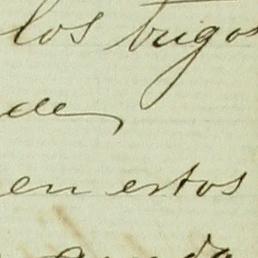 los trigos
de
en estos